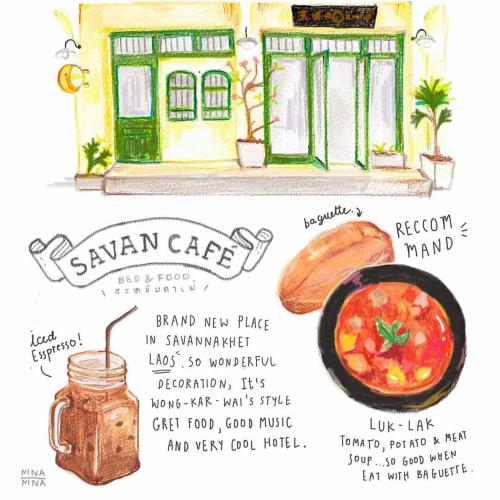 SAVAN CAFÉ
BED & FOOD
baguette.
RECCOM
MAND
iced
Esspresso!
BRAND NEW PLACE
IN SAVANNAKHET
LAOS. SO WONDERFUL
DECORATION, IT'S
WONG-KAR-WAI'S STYLE
GRET FOOD, GOOD MUSIC
AND VERY COOL HOTEL.
LUK-LAK
TOMATO, POTATO & MEAT
SOUP...SO GOOD WHEN
EAT WITH BAGUETTE.
MINA
MINA